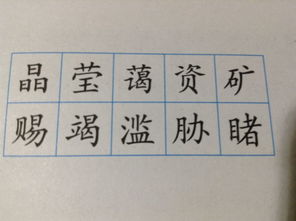 晶莹蔼资矿
赐竭滥胁睹